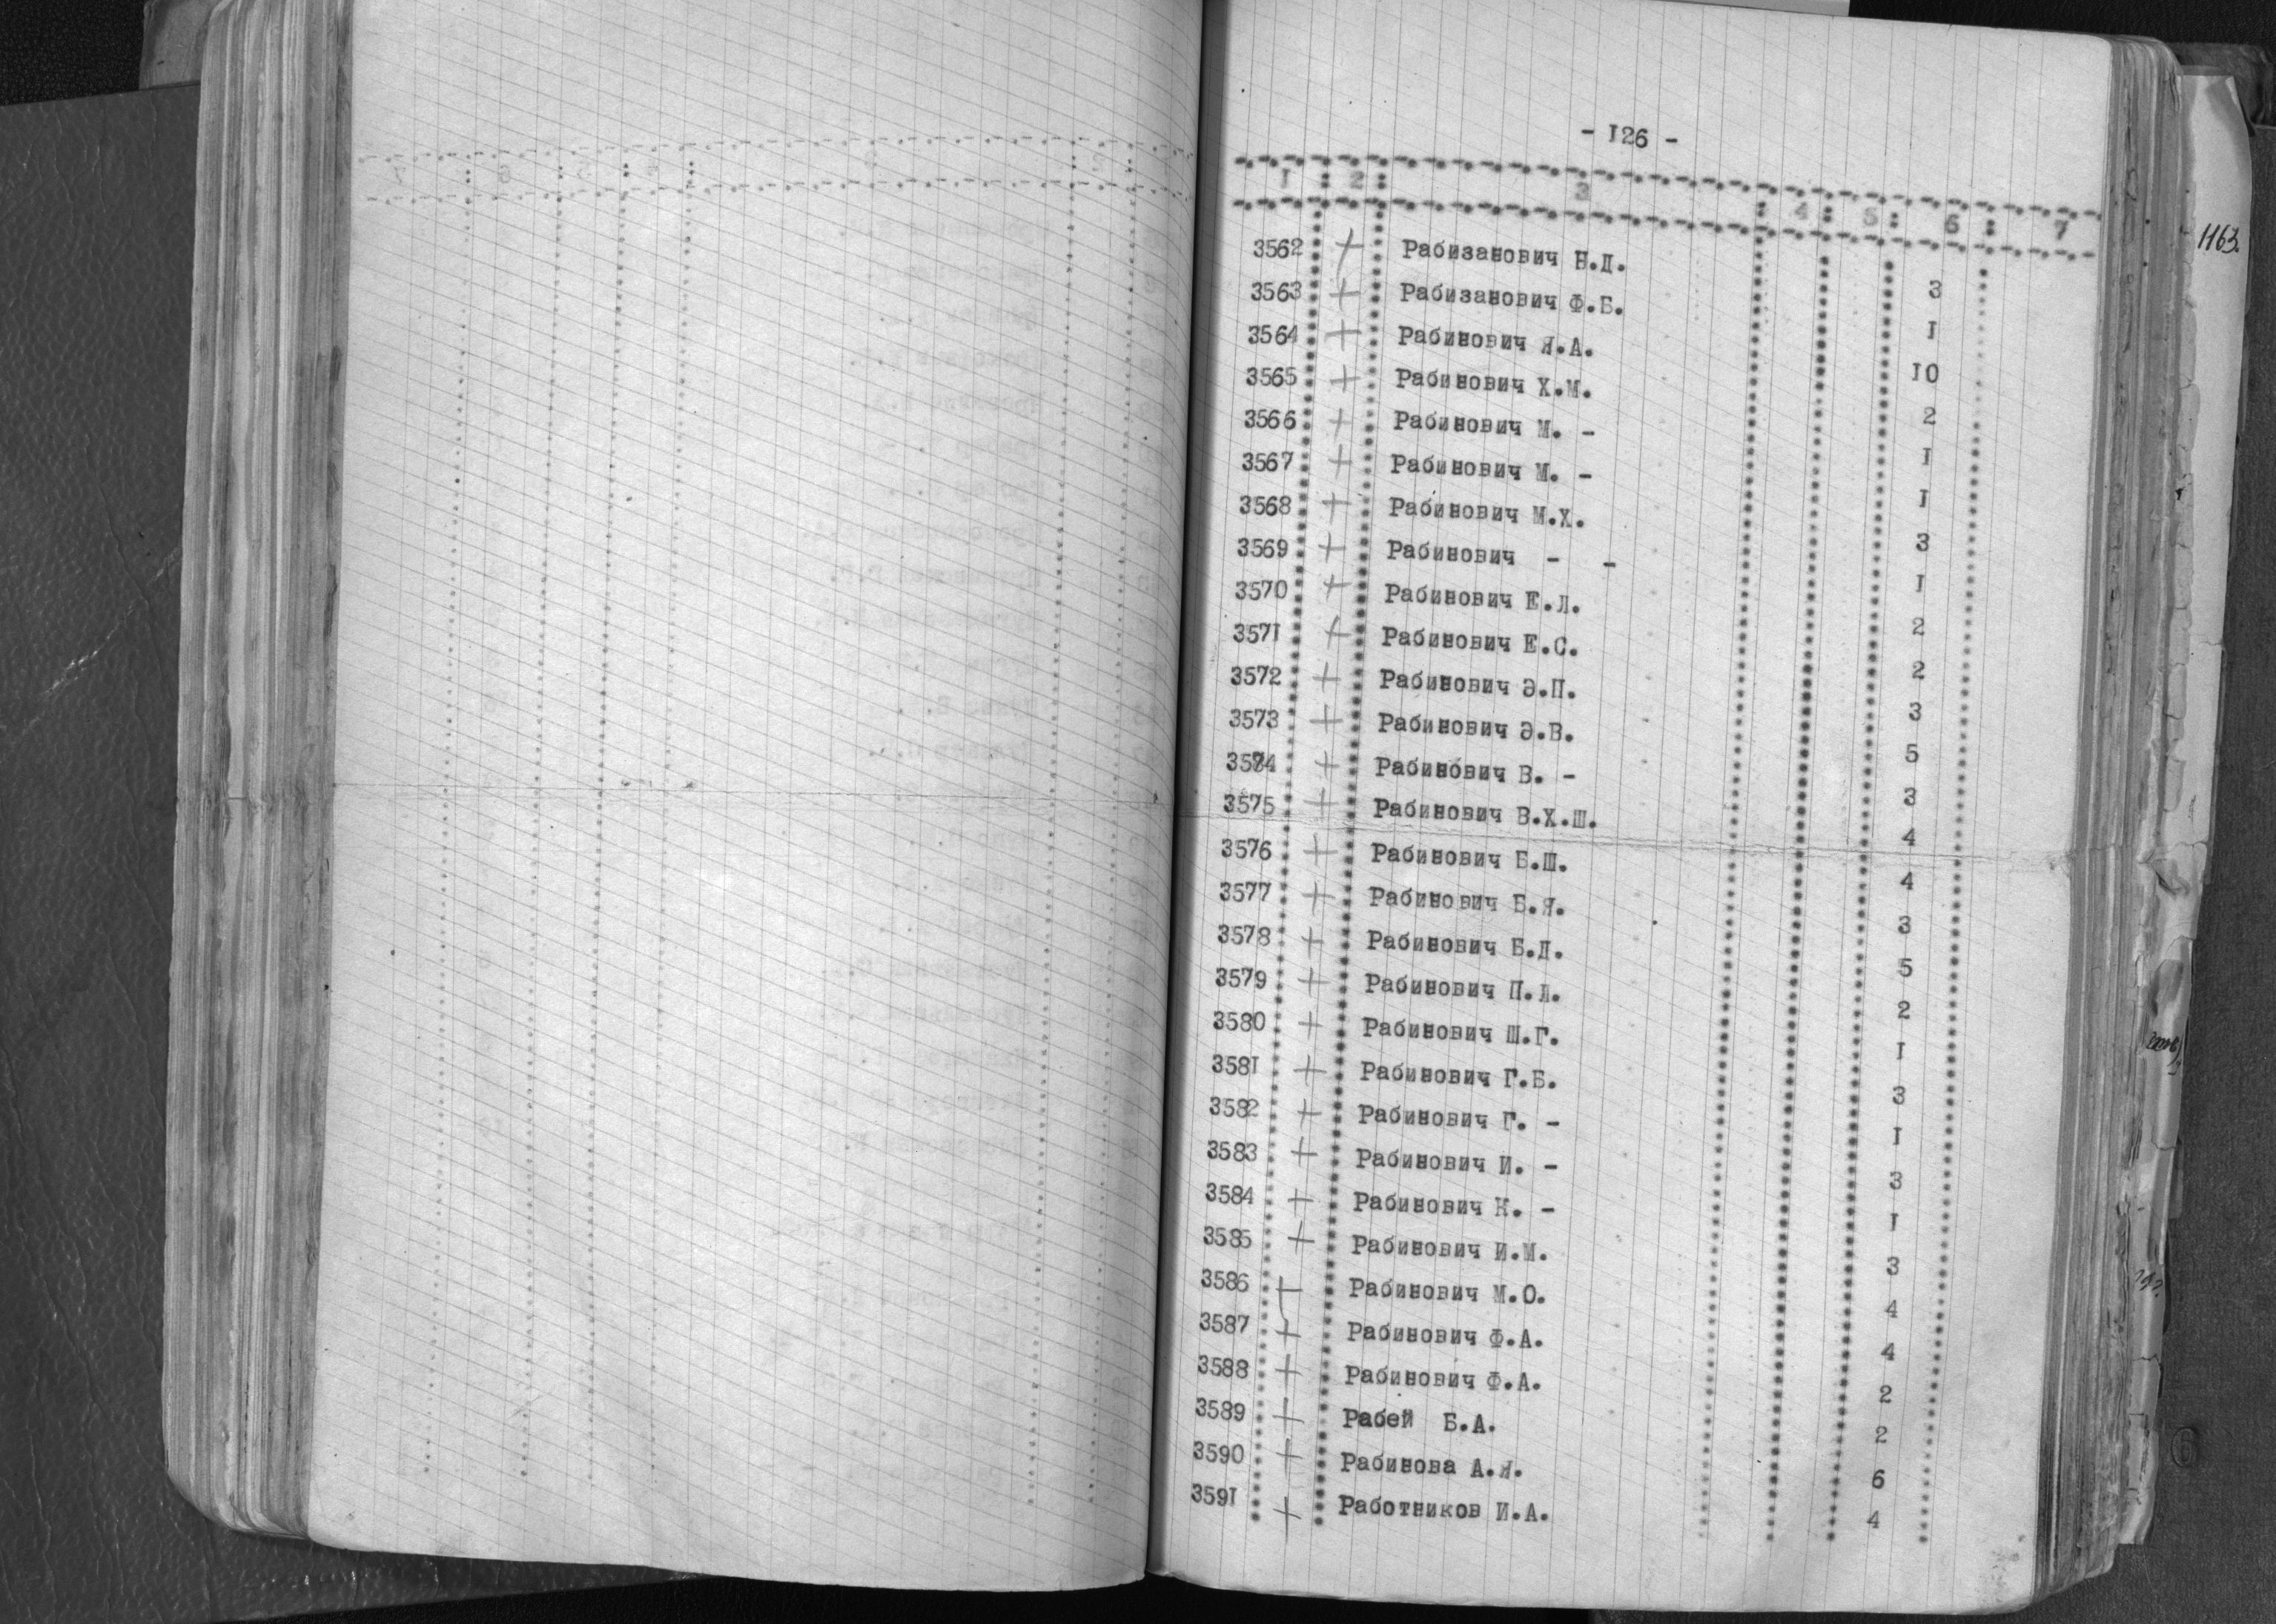 - I26 -
I : 2 : 3 : 4 : 5 : 6 : 7
1163.
3562 + Рабизанович Н.Д. 3
3563 + Рабизанович Ф.Б. I
3564 + Рабинович Я.А. I0
3565 + Рабинович Х.М. 2
3566 + Рабинович М. - I
3567 + Рабинович М. - I
3568 + Рабинович М.Х. 3
3569 + Рабинович - - I
3570 + Рабинович Е.Л. 2
357I + Рабинович Е.С. 2
3572 + Рабинович Э.П. 3
3573 + Рабинович Э.В. 5
3574 + Рабинович В. - 3
3575 + Рабинович В.Х.Ш. 4
3576 + Рабинович Б.Ш. 4
3577 + Рабинович Б.Я. 3
3578 + Рабинович Б.Д. 5
3579 + Рабинович П.Л. 2
3580 + Рабинович Ш.Г. I
358I + Рабинович Г.Б. 3
3582 + Рабинович Г. - I
3583 + Рабинович И. - 3
3584 + Рабинович К. - I
3585 + Рабинович И.М. 3
3586 + Рабинович М.О. 4
3587 + Рабинович Ф.А. 4
3588 + Рабинович Ф.А. 2
3589 + Рабей Б.А. 2
3590 + Рабинова А.Я. 6
359I + Работников И.А. 4